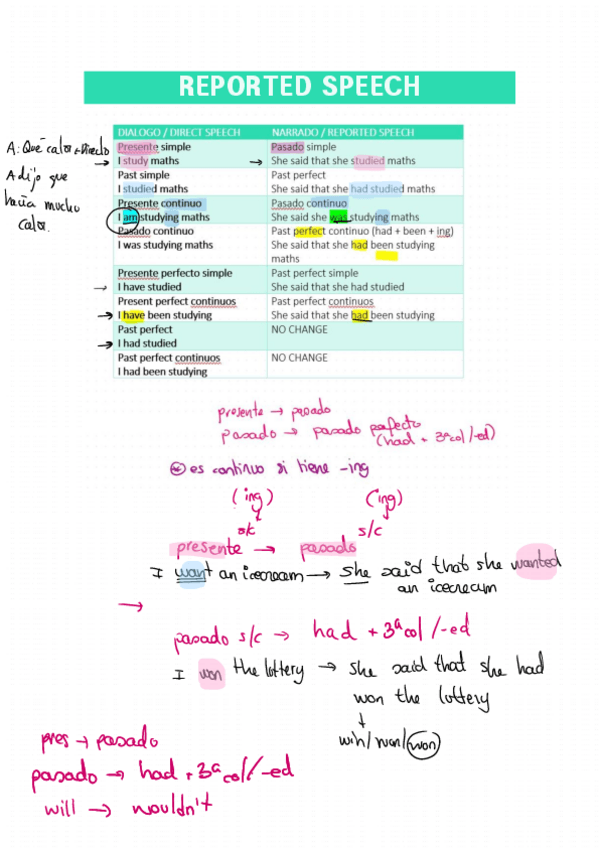 REPORTED SPEECH
DIALOGO / DIRECT SPEECH NARRADO / REPORTED SPEECH
Presente simple Pasado simple
I study maths → She said that she studied maths
Past simple Past perfect
I studied maths She said that she had studied maths
Presente continuo Pasado continuo
I am studying maths She said she was studying maths
Pasado continuo Past perfect continuo (had + been + ing)
I was studying maths She said that she had been studying
maths
Presente perfecto simple Past perfect simple
→ I have studied She said that she had studied
Present perfect continuos Past perfect continuos
→ I have been studying She said that she had been studying
Past perfect NO CHANGE
→ I had studied
Past perfect continuos NO CHANGE
I had been studying
A: Que calor → Directo
→
A dijo que
hacía mucho
calor.
presente → pasado
pasado → pasado perfecto
(had + 3ª col /-ed)
es continuo si tiene -ing
(ing) (ing)
s/c s/c
presente → pasado
I want an icecream → she said that she wanted
an icecream
→
pasado s/c → had + 3ª col /-ed
I won the lottery → she said that she had
won the lottery
win/won/won
pres → pasado
pasado → had + 3ª col /-ed
will → wouldn't